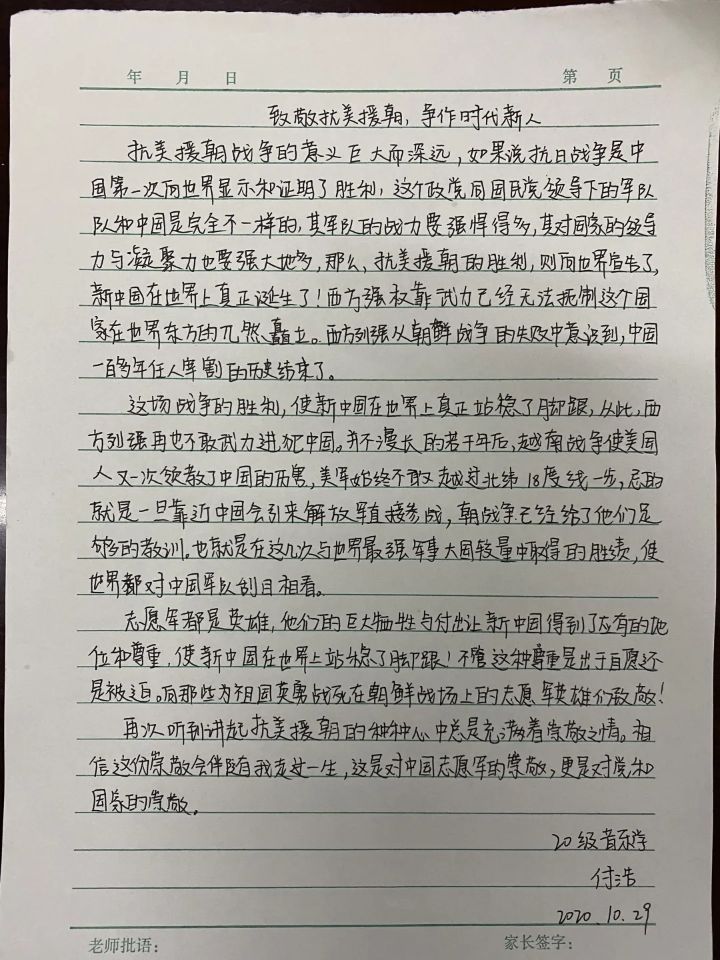 年 月 日 第 页
致敬抗美援朝，争作时代新人
抗美援朝战争的意义巨大而深远，如果说抗日战争是中
国第一次向世界显示和证明了胜利，这个政党同国民党领导下的军队
队和中国是完全不一样的，其军队的战力要强悍得多，其对国家的领导
力与凝聚力也要强大地多，那么、抗美援朝的胜利，则向世界宣告了，
新中国在世界上真正诞生了！西方强权靠武力已经无法抵制这个国
家在世界东方的兀然矗立。西方列强从朝鲜战争的失败中意识到，中国
一百多年任人宰割的历史结束了。
这场战争的胜利，使新中国在世界上真正站稳了脚跟，从此，西
方列强再也不敢武力进犯中国。并不漫长的若干年后，越南战争使美国
人又一次领教了中国的厉害，美军始终不敢越过北纬18度线一步，忌的
就是一旦靠近中国会引来解放军直接参战，朝战争已经给了他们足
够的教训。也就是在这几次与世界最强军事大国较量中取得的胜绩，使
世界都对中国军队刮目相看。
志愿军都是英雄，他们的巨大牺牲与付出让新中国得到了应有的地
位和尊重，使新中国在世界上站稳了脚跟！不管这种尊重是出于自愿还
是被迫。向那些为祖国英勇战死在朝鲜战场上的志愿军英雄们致敬！
再次听到讲起抗美援朝的种种心中总是充满着崇敬之情。相
信这份崇敬会伴随我走过一生，这是对中国志愿军的崇敬，更是对党和
国家的崇敬。
20级音乐学
付浩
2020.10.29
老师批语： 家长签字：